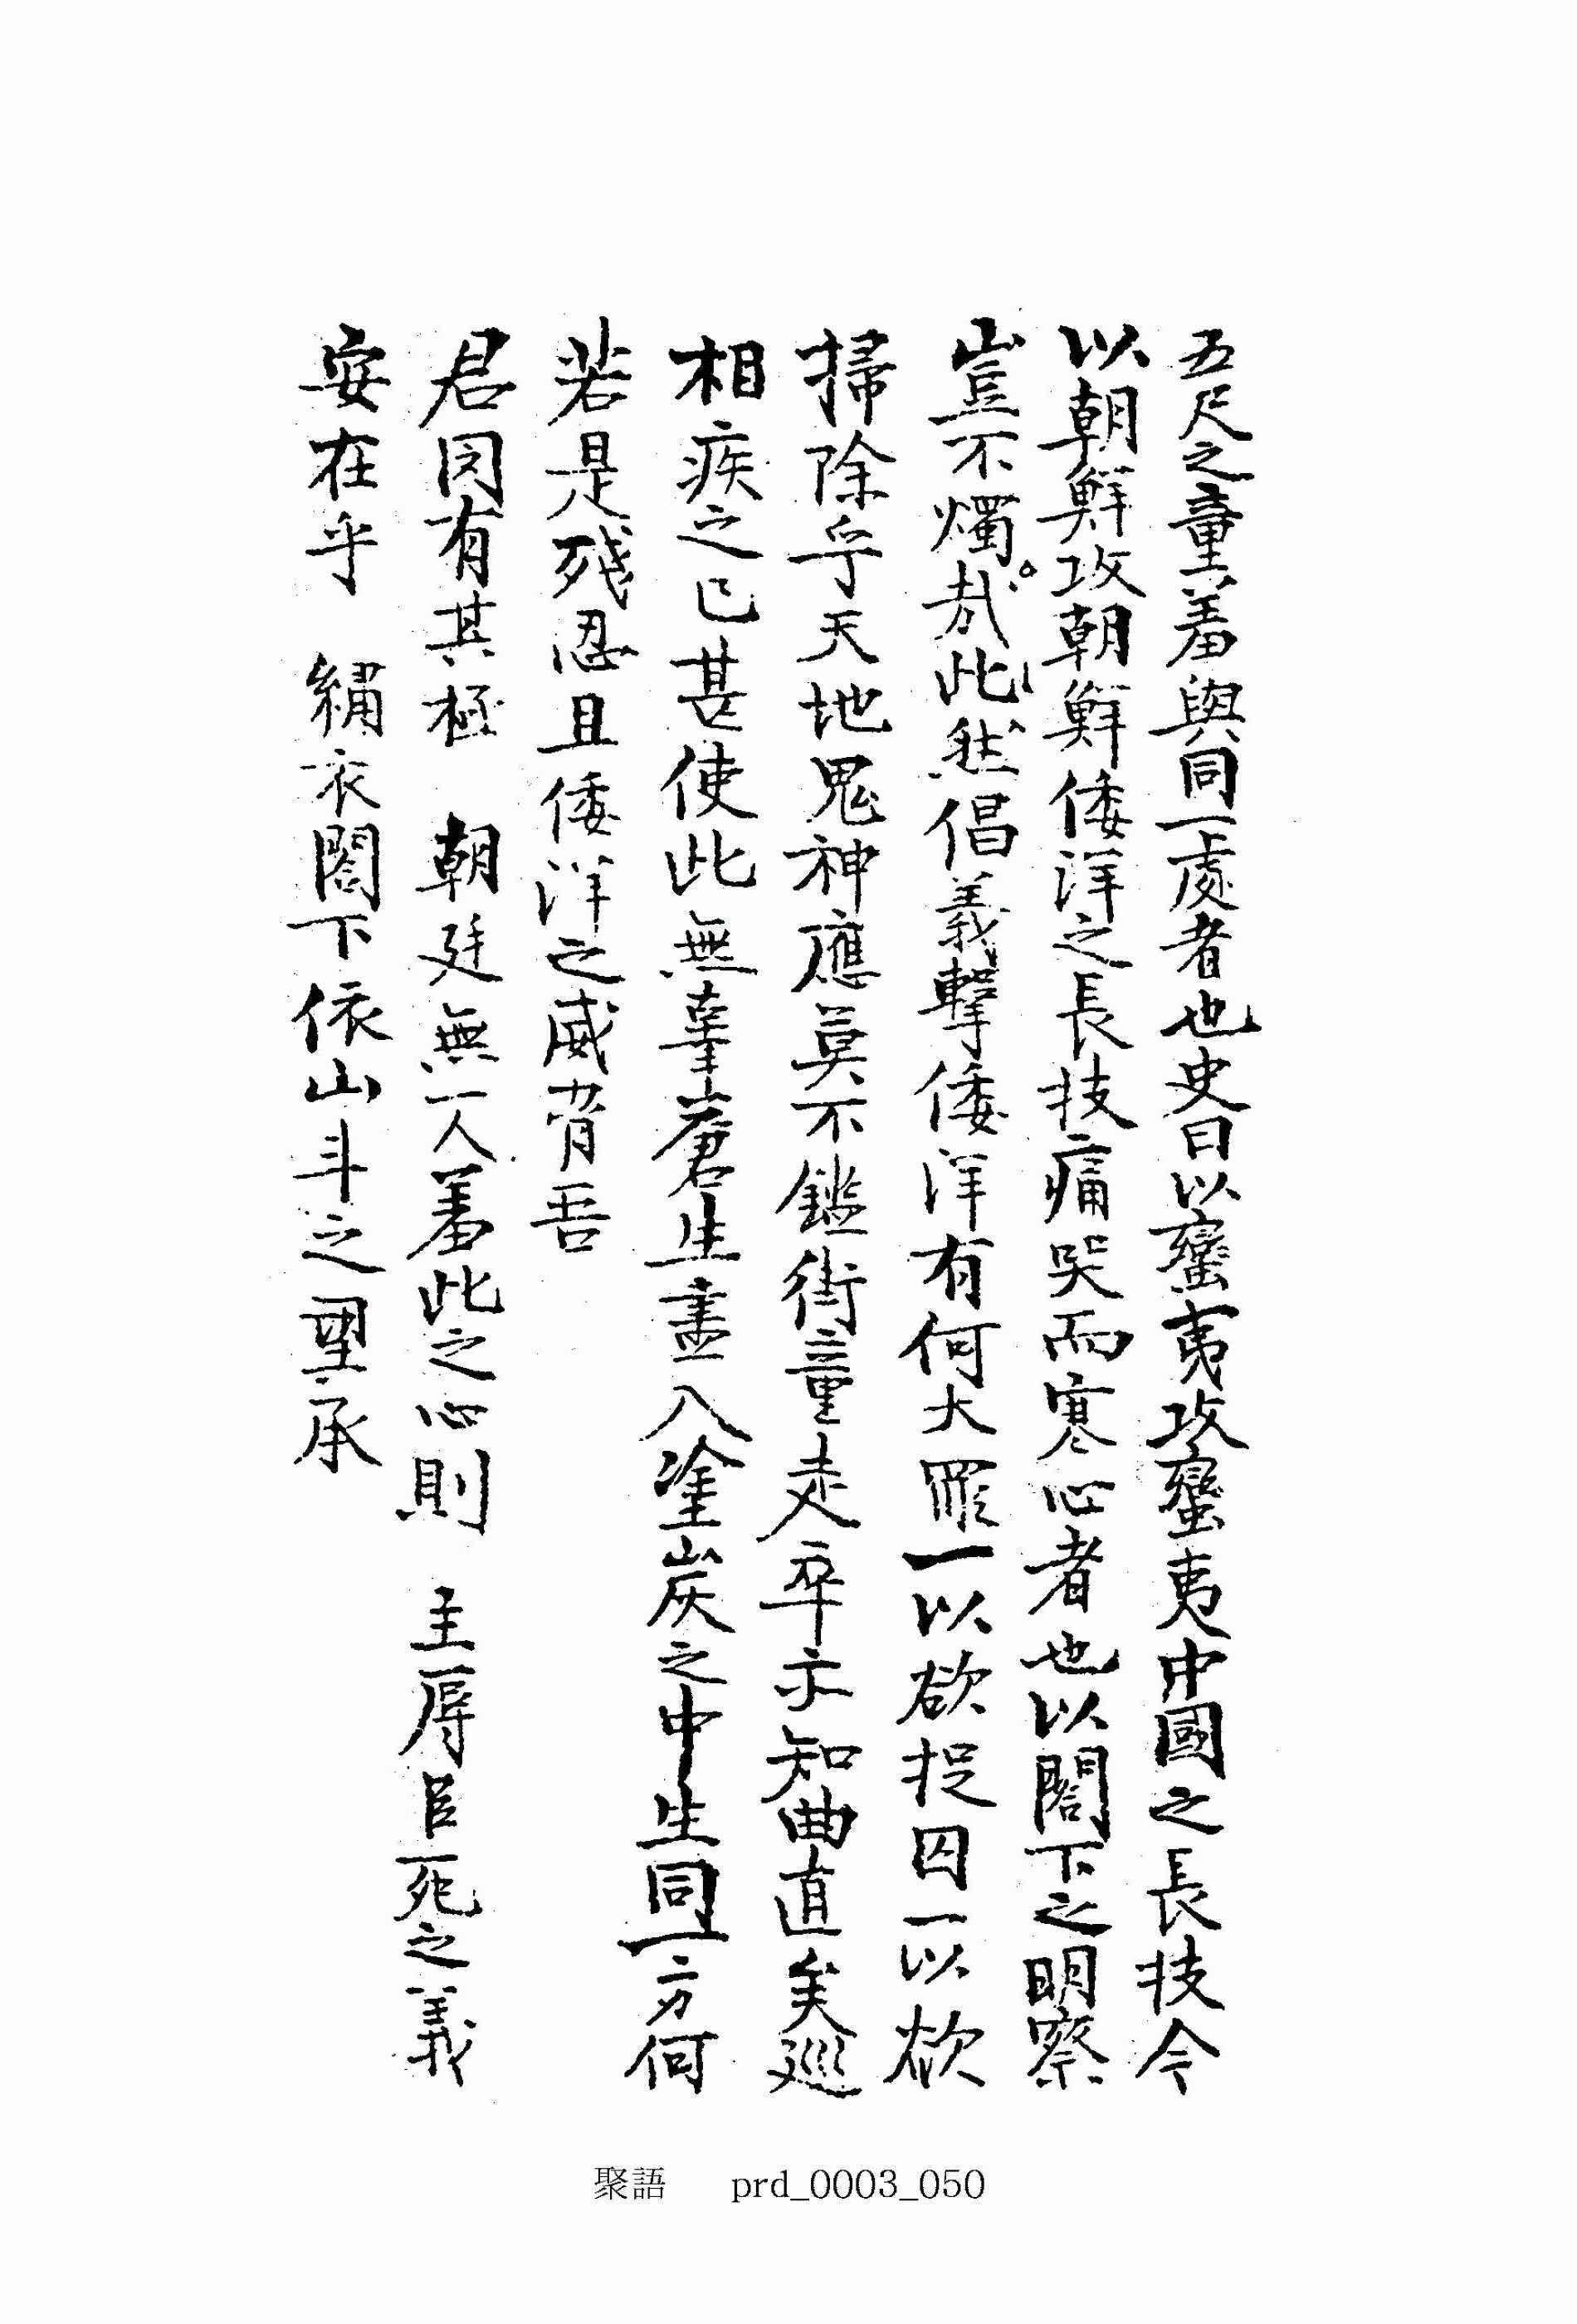 五尺之童羞與同一處者也史曰以蠻夷攻蠻夷中國之長技今
以朝鮮攻朝鮮倭洋之長技痛哭而寒心者也以閤下之明察
豈不燭哉此然倡義擊倭洋有何大罪一以欲捉囚一以欲
掃除乎天地鬼神應莫不鑑街童走卒亦知曲直矣巡
相疾之已甚使此無辜蒼生盡入塗炭之中生同一方何
若是殘忍且倭洋之威脅吾
君罔有其極 朝廷無一人羞此之心則 主辱臣死之義
安在乎 繡衣閤下依山斗之望承
聚語 prd_0003_050